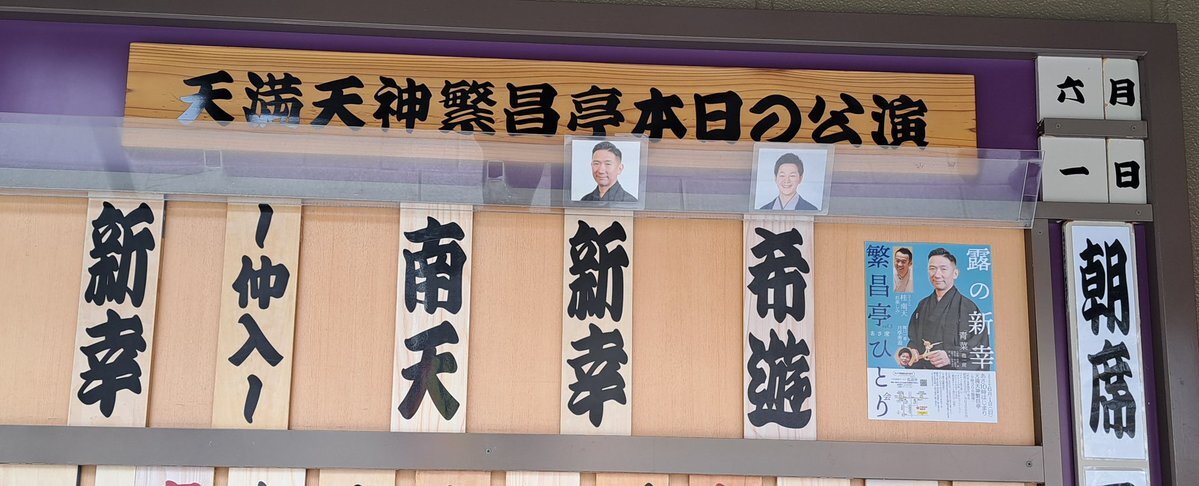 天満天神繁昌亭本日の公演
六月
一日
朝席
希遊
新幸
南天
〜仲入〜
新幸
露の新幸
繁昌亭ひとり会
桂南天